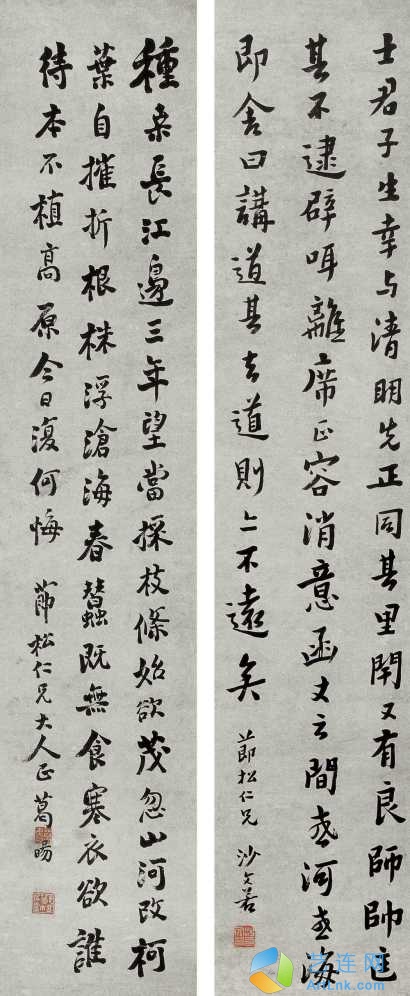 士君子生幸与清明先正同其里閈又有良師帥匡
其不逮辟咡離席正容消意函丈之間若河若海
即舍曰講道其去道則亦不遠矣
節松仁兄 沙文若
種桑長江邊三年望當採枝條始欲茂忽山河改柯
葉自摧折根株浮滄海春蠶既無食寒衣欲誰
待本不植高原今日復何悔
節松仁兄大人正 葛暘
艺连网
Artlnk.com